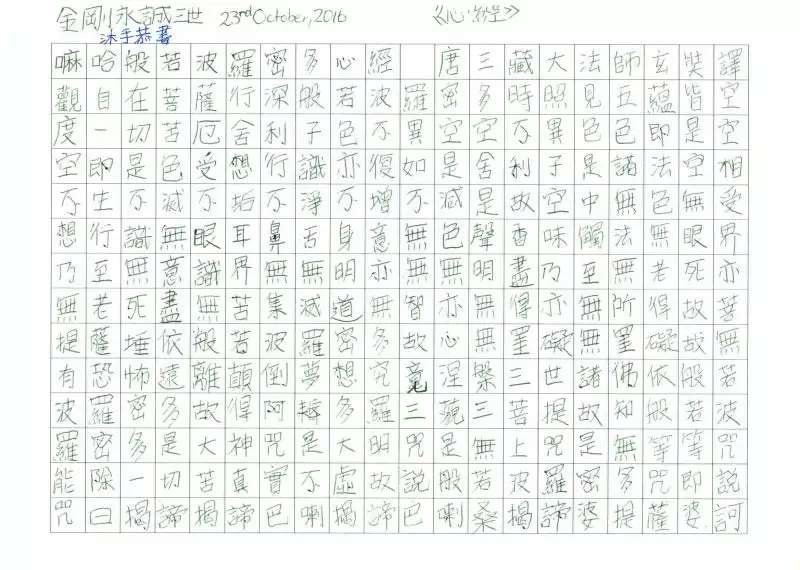 金剛永誠三世 23rd October, 2016 《心經》
沐手恭書
嘛哈般若波羅密多心經 唐三藏大法師玄奘譯
觀自在菩薩行深般若波羅密多時照見五蘊皆空
度一切苦厄舍利子色不異空空不異色色即是空
空即是色受想行識亦復如是舍利子是諸法空相
不生不滅不垢不淨不增不減是故空中無色無受
想行識無眼耳鼻舌身意無色聲香味觸法無眼界
乃至無意識界無無明亦無無明盡乃至無老死亦
無老死盡無苦集滅道無智亦無得亦無所得故菩
提薩埵依般若波羅密多故心無罣礙無罣礙故無
有恐怖遠離顛倒夢想究竟涅槃三世諸佛依般若
波羅密多故得阿耨多羅三藐三菩提故知般若波
羅密多是大神咒是大明咒是無上咒是無等等咒
能除一切苦真實不虛故說般若波羅密多咒即說
咒曰揭諦揭諦巴喇揭諦巴喇桑揭諦婆提薩婆訶